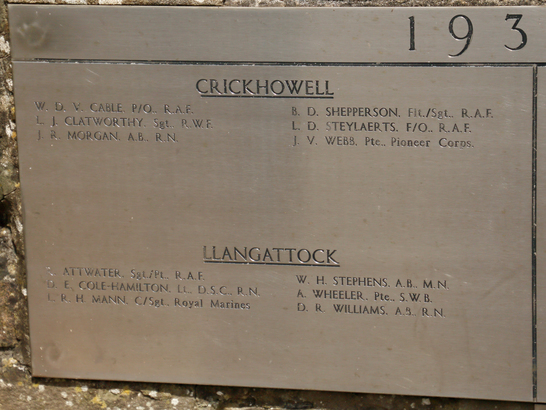 193
CRICKHOWELL
W. D. V. CABLE, P/O., R.A.F.
L. J. CLATWORTHY, Sgt., R.W.F.
J. R. MORGAN, A.B., R.N.
B. D. SHEPPERSON, Flt./Sgt., R.A.F.
L. D. STEYLAERTS, F/O., R.A.F.
J. V. WEBB, Pte., Pioneer Corps.
LLANGATTOCK
ATTWATER, Sgt./Pt., R.A.F.
D. E. COLE-HAMILTON, Lt., D.S.C., R.N.
R. H. MANN, C/Sgt., Royal Marines
W. H. STEPHENS, A.B., M.N.
A. WHEELER, Pte., S.W.B.
D. R. WILLIAMS, A.B., R.N.